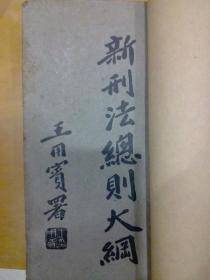 新刑法總則大綱
王用賓署